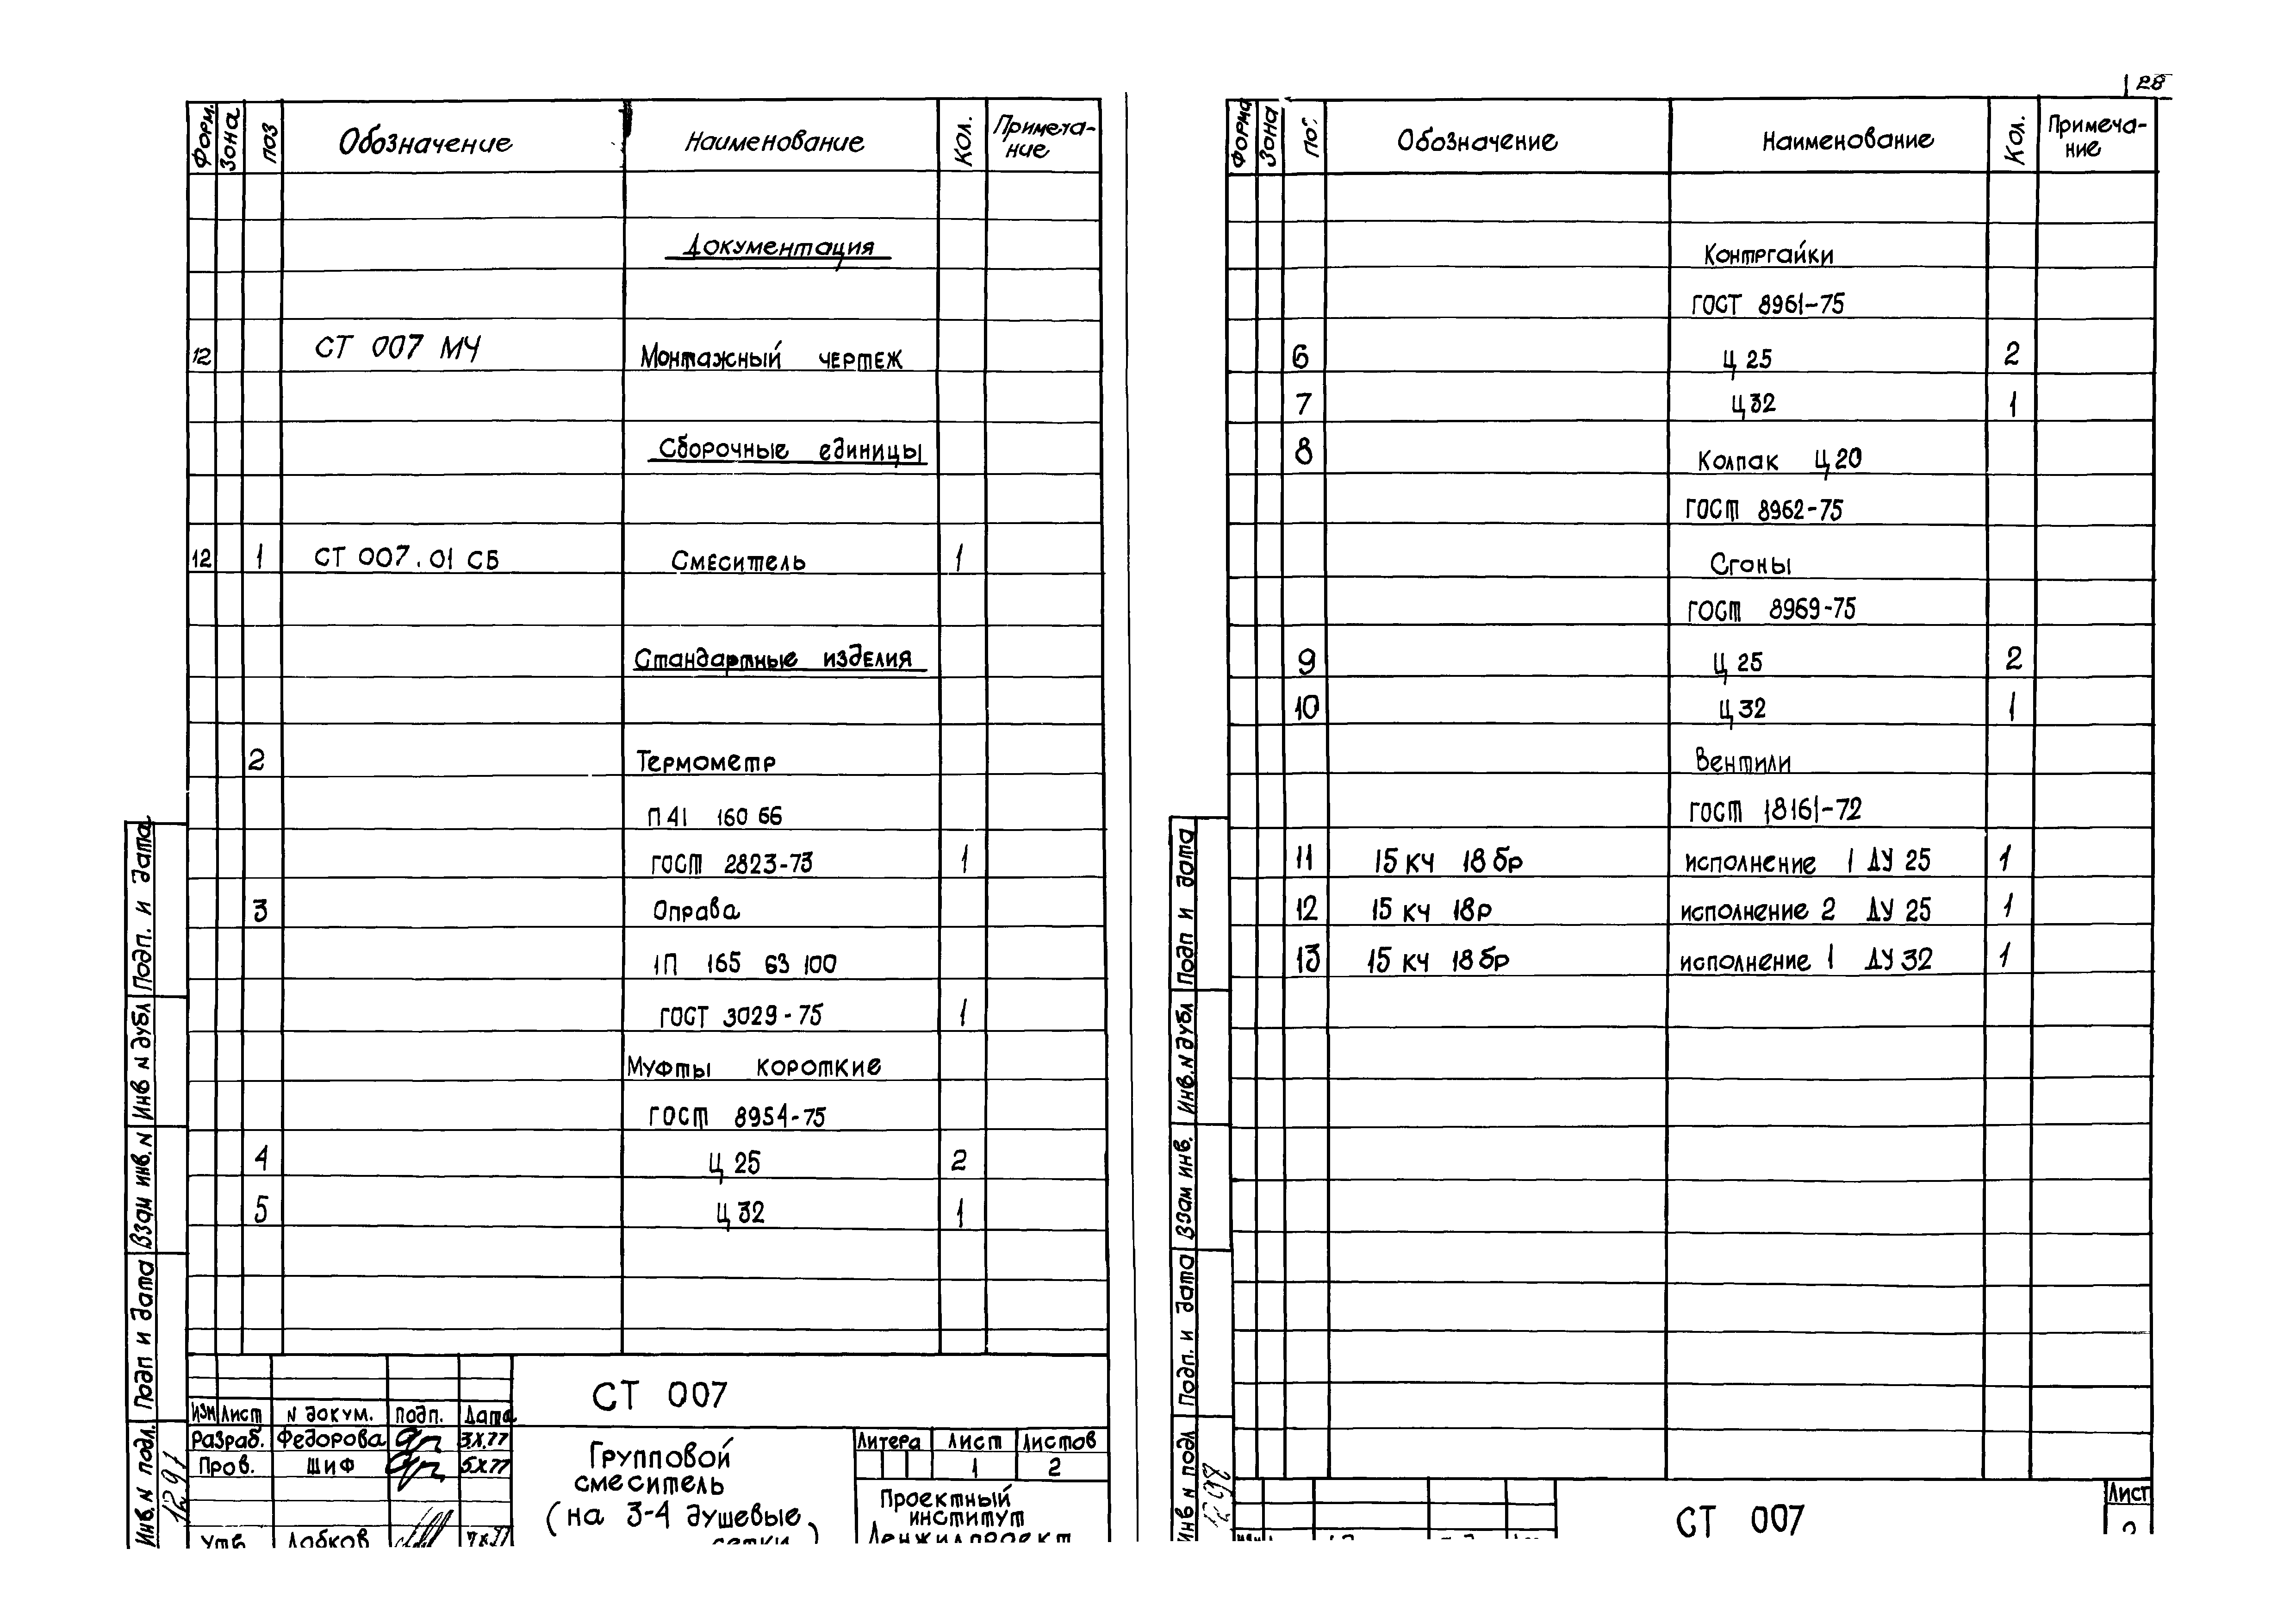 28
Форм. Зона Поз Обозначение Наименование Кол. Примеча-
ние
Документация
12 СТ 007 МЧ Монтажный чертеж
Сборочные единицы
12 1 СТ 007.01 СБ Смеситель 1
Стандартные изделия
2 Термометр
П 41 160 66
ГОСТ 2823-73 1
3 Оправа
1П 165 63 100
ГОСТ 3029-75 1
Муфты короткие
ГОСТ 8954-75
4 Ц 25 2
5 Ц 32 1
Подп. и дата
Инв N дубл
Взам инв. N
Подп и дата
Инв. N подл.
Изм Лист N докум. Подп. Дата
Разраб. Федорова 3.X.77
Пров. Шиф 5.X.77
Утв Лобков
СТ 007
Групповой
смеситель
(на 3-4 душевые
сетки)
Литера Лист Листов
1 2
Проектный
институт
Ленжилпроект
Форма Зона Обозначение Наименование Кол. Примеча-
ние
Контргайки
ГОСТ 8961-75
6 Ц 25 2
7 Ц 32 1
8 Колпак Ц 20
ГОСТ 8962-75
Сгоны
ГОСТ 8969-75
9 Ц 25 2
10 Ц 32 1
Вентили
ГОСТ 18161-72
11 15 кч 18 бр исполнение 1 ДУ 25 1
12 15 кч 18р исполнение 2 ДУ 25 1
13 15 кч 18 бр исполнение 1 ДУ 32 1
Подп и дата
Инв. N дубл
Взам инв.
Подп. и дата
Инв N подл
СТ 007
Лист